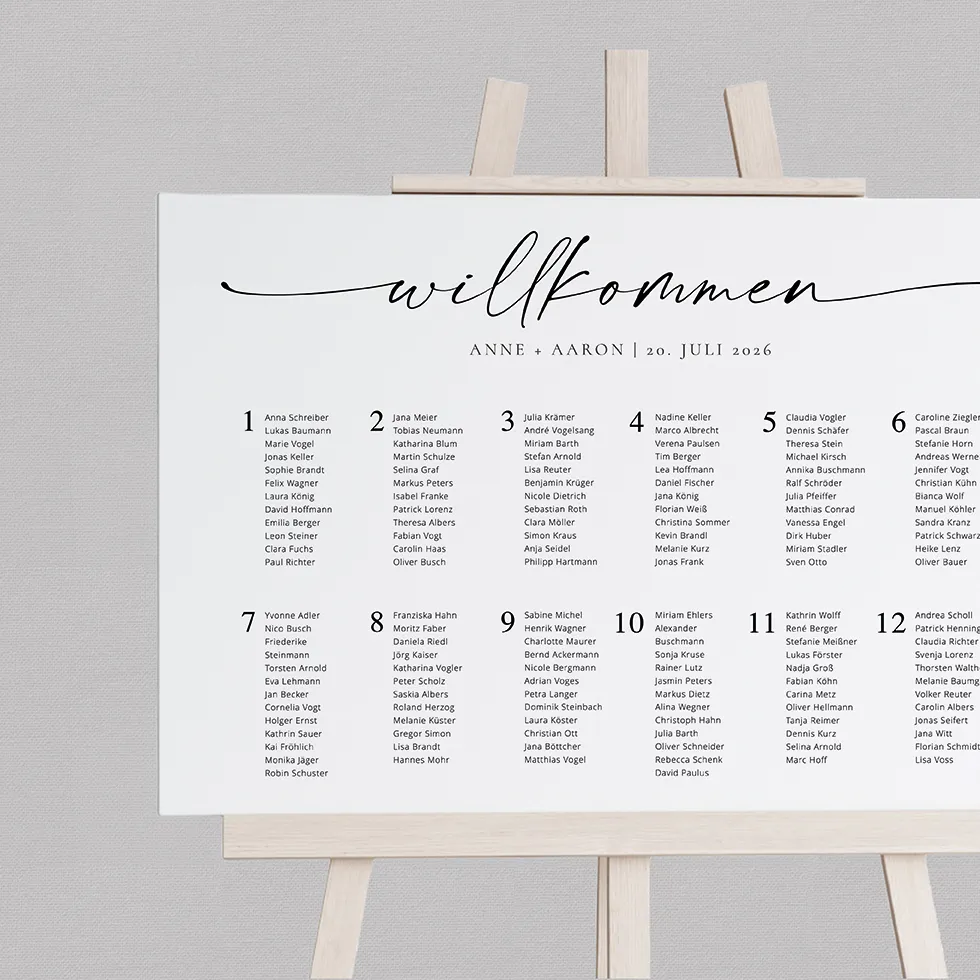 willkommen
ANNE + AARON | 20. JULI 2026
1
Anna Schreiber
Lukas Baumann
Marie Vogel
Jonas Keller
Sophie Brandt
Felix Wagner
Laura König
David Hoffmann
Emilia Berger
Leon Steiner
Clara Fuchs
Paul Richter
2
Jana Meier
Tobias Neumann
Katharina Blum
Martin Schulze
Selina Graf
Markus Peters
Isabel Franke
Patrick Lorenz
Theresa Albers
Fabian Vogt
Carolin Haas
Oliver Busch
3
Julia Krämer
André Vogelsang
Miriam Barth
Stefan Arnold
Lisa Reuter
Benjamin Krüger
Nicole Dietrich
Sebastian Roth
Clara Möller
Simon Kraus
Anja Seidel
Philipp Hartmann
4
Nadine Keller
Marco Albrecht
Verena Paulsen
Tim Berger
Lea Hoffmann
Daniel Fischer
Jana König
Florian Weiß
Christina Sommer
Kevin Brandl
Melanie Kurz
Jonas Frank
5
Claudia Vogler
Dennis Schäfer
Theresa Stein
Michael Kirsch
Annika Buschmann
Ralf Schröder
Julia Pfeiffer
Matthias Conrad
Vanessa Engel
Dirk Huber
Miriam Stadler
Sven Otto
6
Caroline Ziegler
Pascal Braun
Stefanie Horn
Andreas Werne
Jennifer Vogt
Christian Kühn
Bianca Wolf
Manuel Köhler
Sandra Kranz
Patrick Schwarz
Heike Lenz
Oliver Bauer
7
Yvonne Adler
Nico Busch
Friederike
Steinmann
Torsten Arnold
Eva Lehmann
Jan Becker
Cornelia Vogt
Holger Ernst
Kathrin Sauer
Kai Fröhlich
Monika Jäger
Robin Schuster
8
Franziska Hahn
Moritz Faber
Daniela Riedl
Jörg Kaiser
Katharina Vogler
Peter Scholz
Saskia Albers
Roland Herzog
Melanie Küster
Gregor Simon
Lisa Brandt
Hannes Mohr
9
Sabine Michel
Henrik Wagner
Charlotte Maurer
Bernd Ackermann
Nicole Bergmann
Adrian Voges
Petra Langer
Dominik Steinbach
Laura Köster
Christian Ott
Jana Böttcher
Matthias Vogel
10
Miriam Ehlers
Alexander
Buschmann
Sonja Kruse
Rainer Lutz
Jasmin Peters
Markus Dietz
Alina Wegner
Christoph Hahn
Julia Barth
Oliver Schneider
Rebecca Schenk
David Paulus
11
Kathrin Wolff
René Berger
Stefanie Meißner
Lukas Förster
Nadja Groß
Fabian Köhn
Carina Metz
Oliver Hellmann
Tanja Reimer
Dennis Kurz
Selina Arnold
Marc Hoff
12
Andrea Scholl
Patrick Henning
Claudia Richter
Svenja Lorenz
Thorsten Walth
Melanie Baumg
Volker Reuter
Carolin Albers
Jonas Seifert
Jana Witt
Florian Schmidt
Lisa Voss